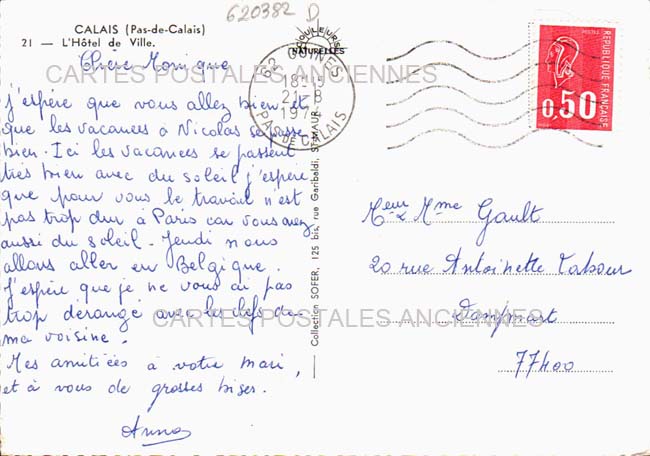 620382 D
CALAIS (Pas-de-Calais)
21 — L'Hôtel de Ville.
COULEURS NATURELLES
Chère Monique
CARTES POSTALES ANCIENNES
j'espère que vous allez bien et
que les vacances à Nicolas se passe
bien. Ici les vacances se passent
très bien avec du soleil j'espère
que pour vous le travail n'est
pas trop dur à Paris car vous avez
aussi du soleil. Jeudi nous
allons aller en Belgique.
J'espère que je ne vous ai pas
trop dérangé avec les clefs de
ma voisine.
Mes amitiées à votre mari,
et à vous de grosses bises.
Anna
Collection SOFER, 125 bis, rue Garibaldi, ST-MAUR
62 GUINES
18H
8
PAS DE CALAIS
POSTES
REPUBLIQUE FRANÇAISE
0,50
Meur & Mme Gault
20 rue Antoinette Tabour
Dampmart
77400
CARTES POSTALES ANCIENNES